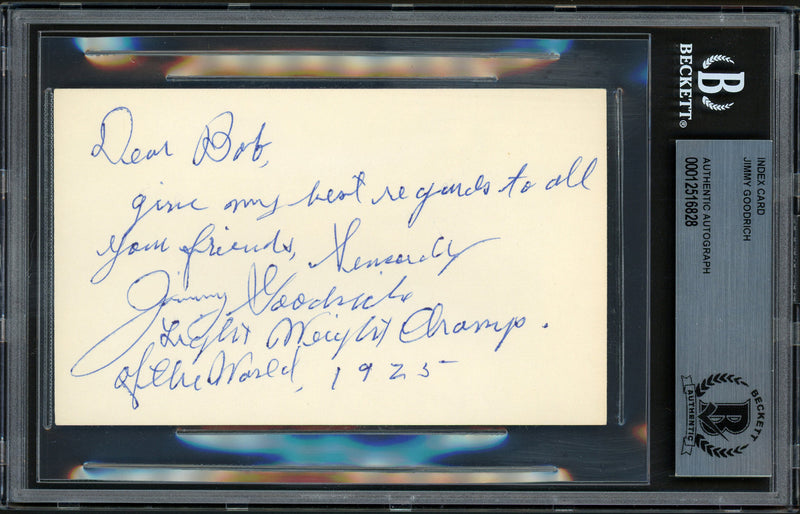 Dear Bob,
give my best regards to all
your friends, Sincerely
Jimmy Goodrich
Light Weight Champ.
of the World, 1925
BECKETT®
INDEX CARD
JIMMY GOODRICH
AUTHENTIC AUTOGRAPH
00012516828
BECKETT
AUTHENTIC